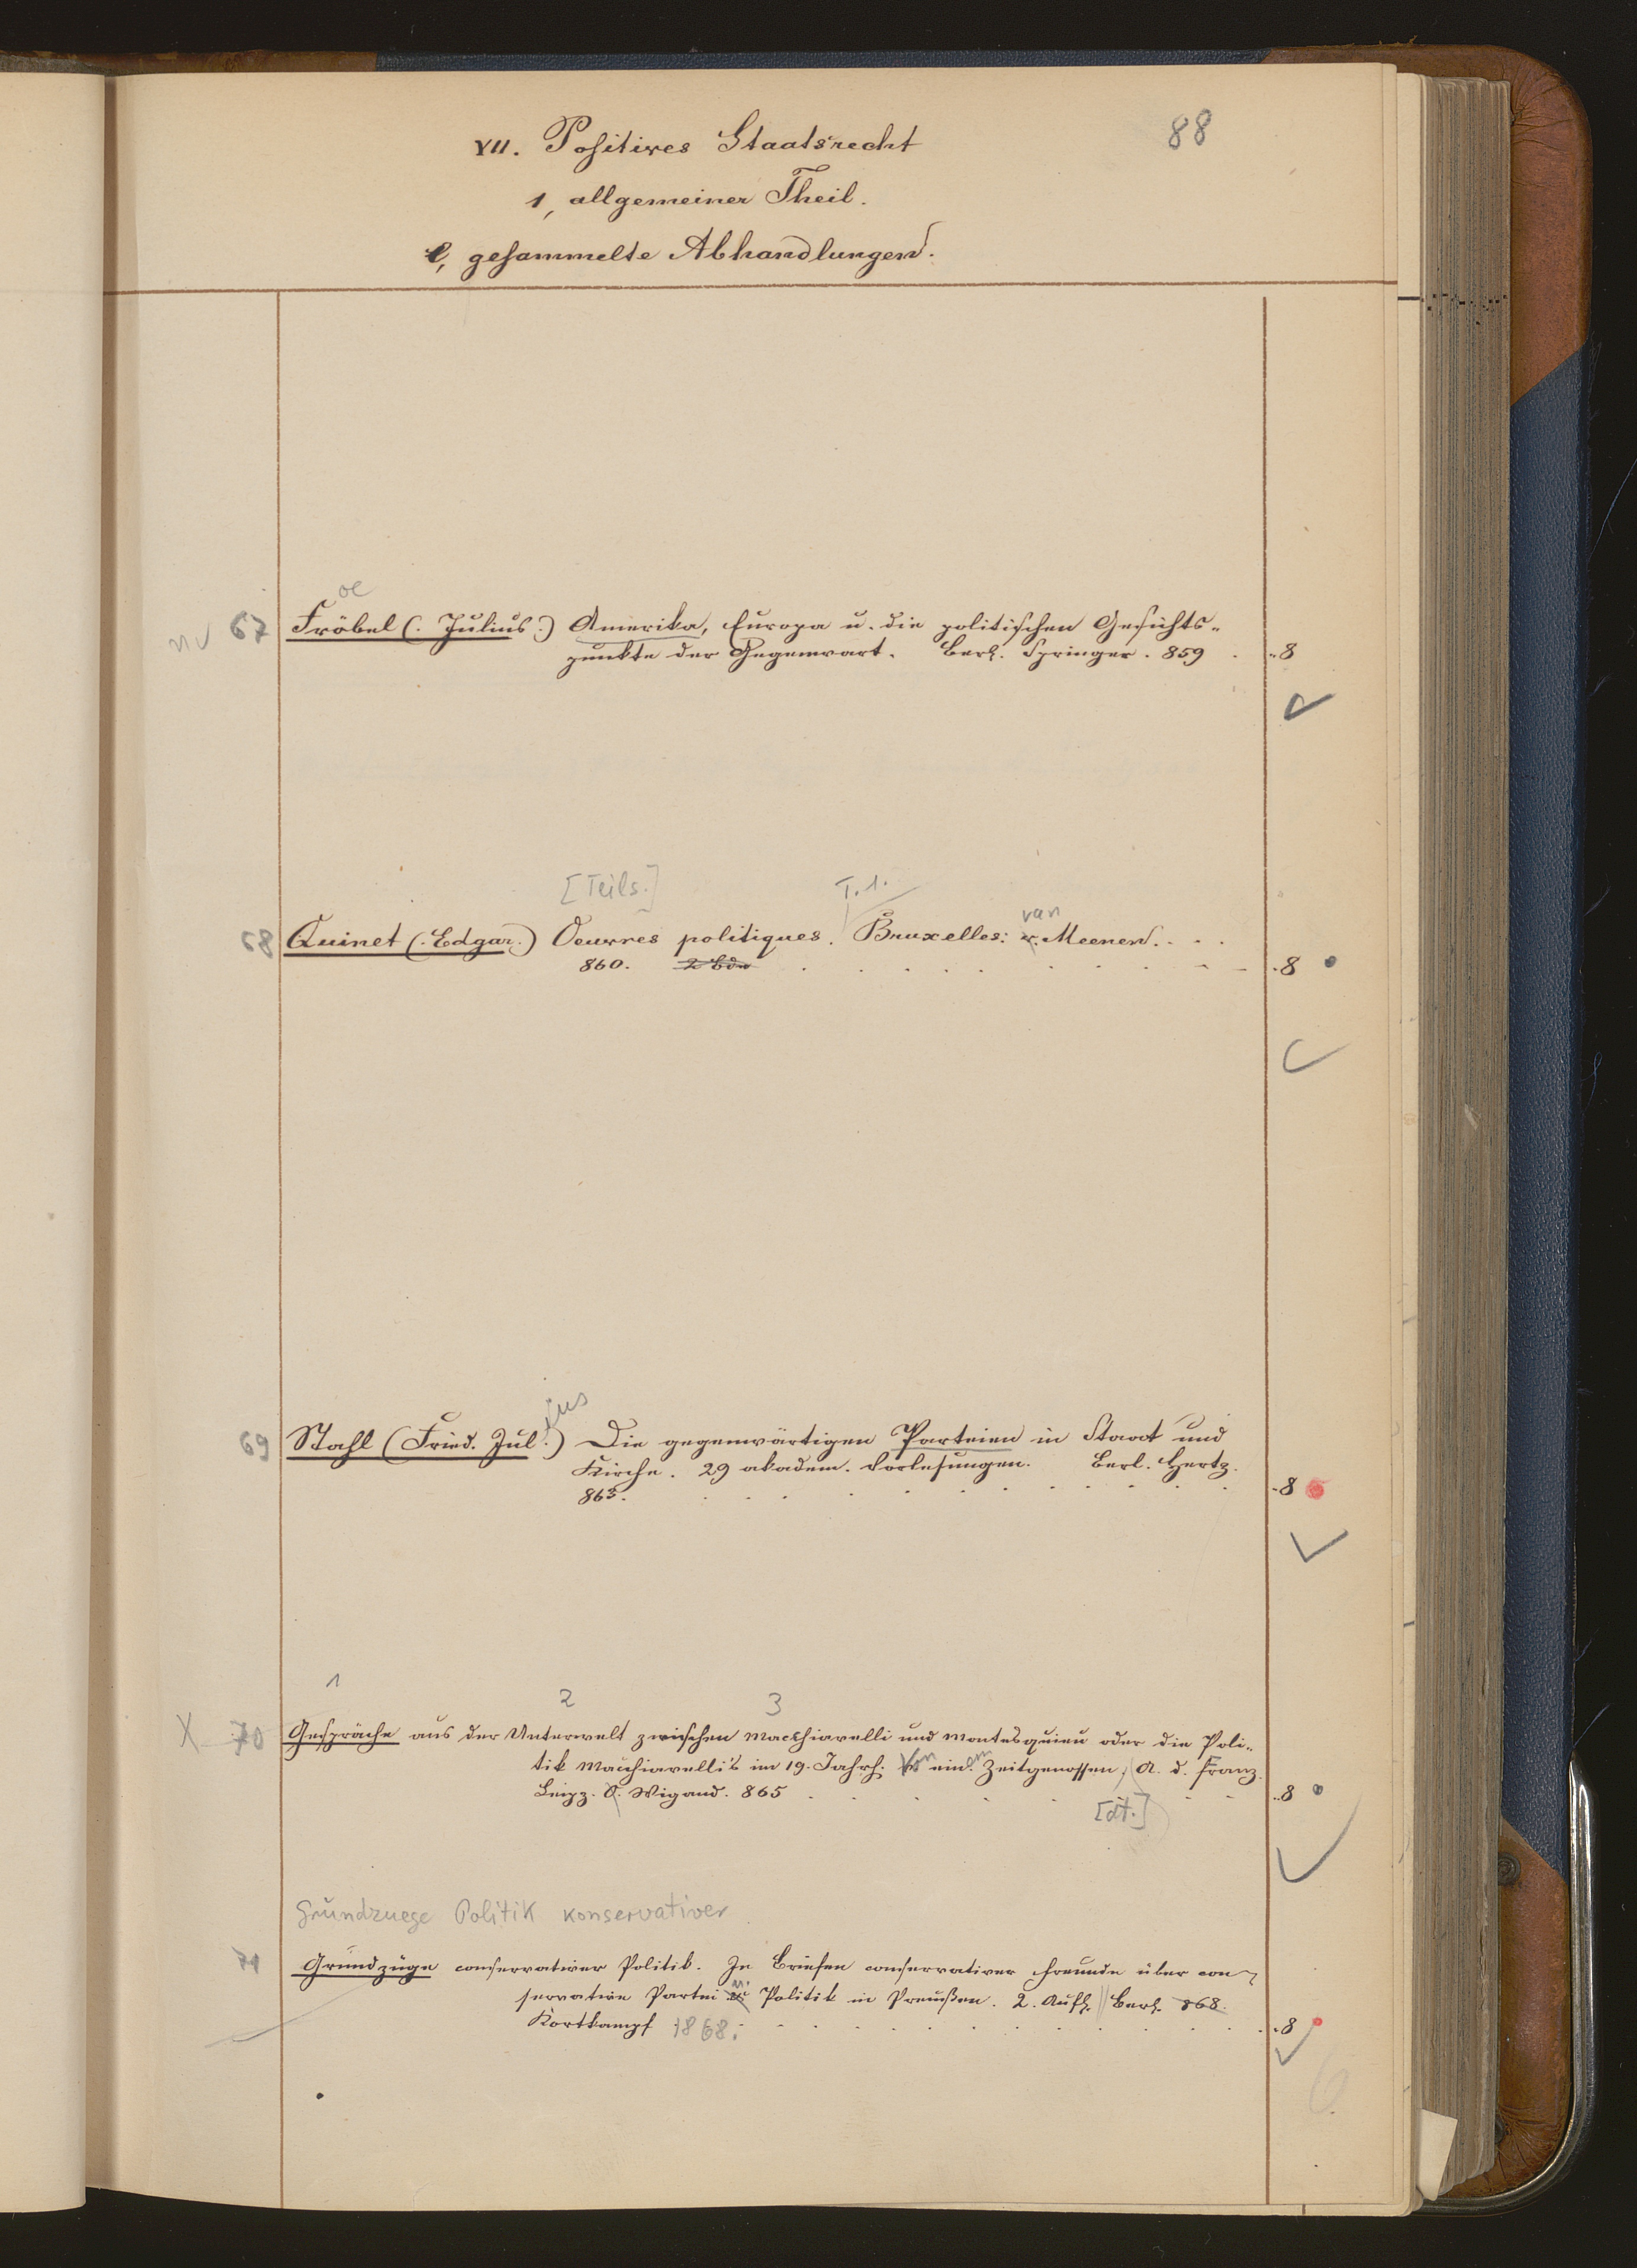 88
VII. Positives Staatsrecht
1, allgemeiner Theil.
e, gesammelte Abhandlungen.
oe
67 Fröbel (: Julius :) Amerika, Europa u. die politischen Gesichts-
punkte der Gegenwart. Berl. Springer. 859 . 8
[Teils.] T. 1.
van
68 Quinet (: Edgar :) Oeuvres politiques. Bruxelles: v. Meenen. . . .
860. 2 Bde . . . . . . . . 8
ius
69 Stahl (Fried. Jul.) Die gegenwärtigen Parteien in Staat und
Kirche. 29 akadem. Vorlesungen. Berl. Hertz.
863. . . . . . . . . . 8
1 2 3
X 70 Gespräche aus der Unterwelt zwischen Macchiavelli und Montesquieu oder die Poli-
tik Macchiavelli's im 19. Jahrh. Von einem Zeitgenossen, A. d. Franz.
Leipz. O. Wigand. 865 . . . . 8
[dt.]
Grundzuege Politik konservativer
71 Grundzüge conservativer Politik. In Briefen conservativer Freunde über con-
servative Partei u. Politik in Preußen. 2. Aufl. Berl. 868.
Kortkampf 1868. . . . . . . . 8